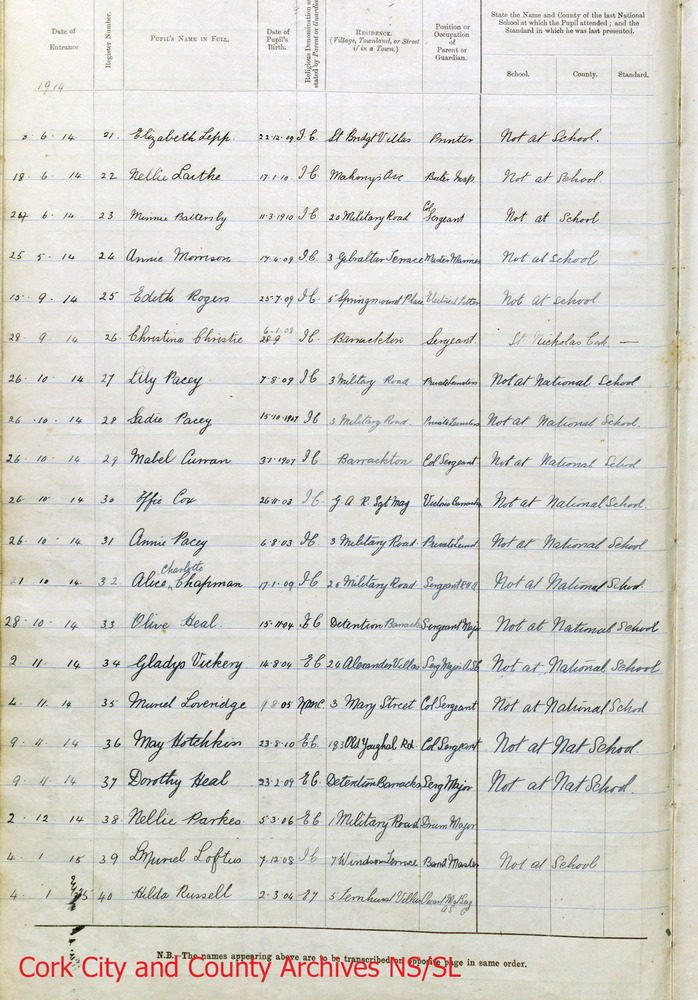 Date of Entrance Register Number. PUPIL'S NAME IN FULL. Date of Pupil's Birth. Religious Denomination as stated by Parent or Guardian RESIDENCE. (Village, Townland, or Street if in a Town.) Position or Occupation of Parent or Guardian. State the Name and County of the last National School at which the Pupil attended; and the Standard in which he was last presented.
School. County. Standard.
1914
6 14 21 Elizabeth Lepp 22.12.09 I.C. St Bridgt Villas Printer Not at School.
18. 6 14 22 Nellie Laithe 17.1.10 I C Mahonys Ave Boiler Insp. Not at School
6 14 23 Minnie Battersby 11.3.1910 I C 20 Military Road Col Sergeant Not at School
25 5. 14 24 Annie Morrison 09 I C 3 Gibraltar Terrace Master Mariner Not at School
15 9. 14 25 Edith Rogers 25.7.09 I.C. 5 Springmount Place Not at school
29 9 14 26 Christina Christie 6.1.08 28.9 I C. Barrackton Sergeant. St Nicholas Cork —
26. 10 14 27 Lily Pacey 7.8.09 I C 3 Military Road Private Not at National School
26 .10. 14 28 Sadie Pacey 15.10.1907 I C 3 Military Road. Private Not at National School.
26. 10 14 29 Mabel Curran 3.1.1907 I C Barrackton Col Sergeant Not at National School
26 10 14 30 Effie Cox 26.11.03 I C. G. A. R. Sgt Mag Victoria Barracks Not at National School.
26. 10 14. 31 Annie Pacey 6.8.03 I C. 3 Military Road. Private Not at National School
21 10 14. 32 Alice Charlotte Chapman 17.1.09 I C 26 Military Road Sergeant R.G.A. Not at National School
28. 10. 14 33 Olive Heal. 15.11.04 E C Detention Barracks Sergeant Major Not at National School
2. 11. 14 34 Gladys Vickery 14.8.04 E C 24 Alexander Villas Serg Major A.S.C Not at National School
4. 11. 14 35 Muriel Loveridge 9 8.05 3 Mary Street Col Sergeant Not at National School
9. 11. 14 36 May Hotchkiss 23.8.10 E C. 183 Old Youghal Rd. Col Sergeant Not at Nat School.
9. 11 14 37 Dorothy Heal 23.2.09 E C. Detention Barracks Serg Major Not at Nat School.
2. 12 14 38 Nellie Parkes 5.3.06 E C 1 Military Road Drum Major
4. 1. 15 39 Muriel Loftus 7.12.08 I C 7 Windsor Terrace Band Master Not at School
4. 1 15 40 Hilda Russell 2.3.04 5 Villas
N.B. The names appearing above are to be transcribed on opposite page in same order.
Cork City and County Archives NS/SL